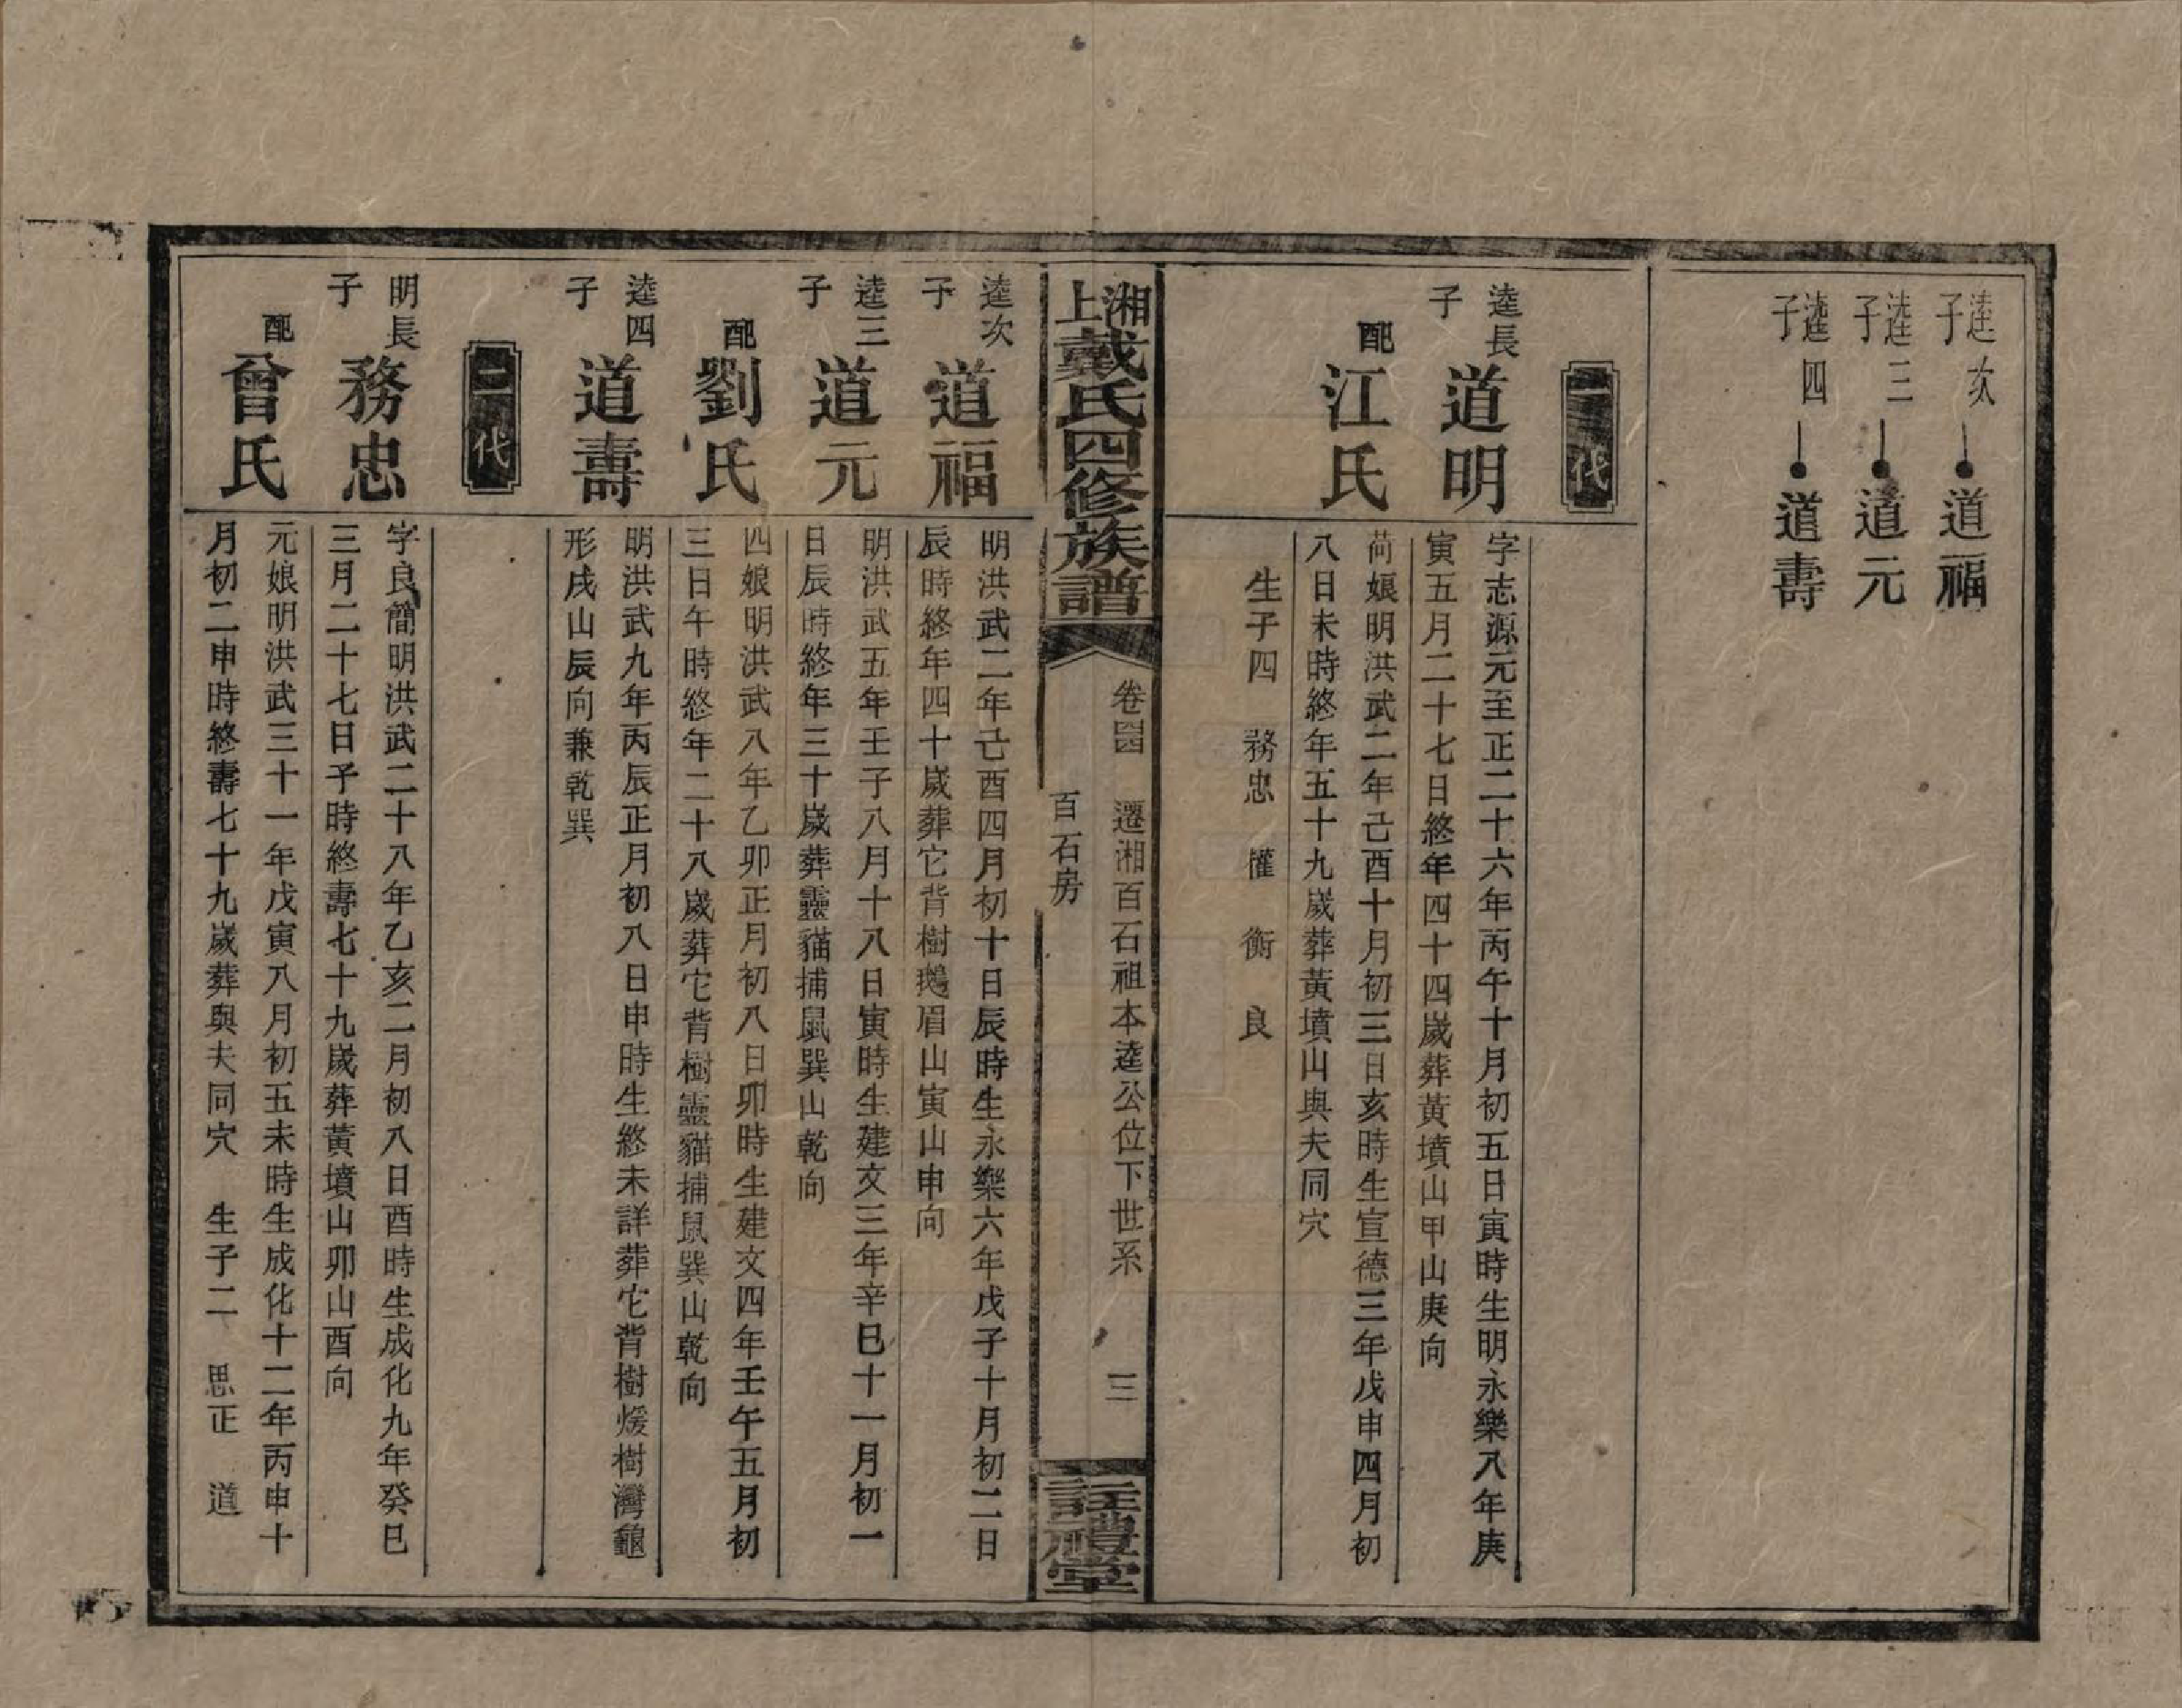 逵次子 道福
逵三子 道元
逵四子 道壽
一代
逵長子 道明
字志源元至正二十六年丙午十月初五日寅時生明永樂八年庚
寅五月二十七日終年四十四歲葬黃墳山甲山庚向
配 江氏
荷娘明洪武二年己酉十月初三日亥時生宣德三年戊申四月初
八日未時終年五十九歲葬黃墳山與夫同穴
生子四 務忠 權 衡 良
湘上戴氏四修族譜
卷四 遷湘百石祖本逵公位下世系 三
百石房
註禮堂
逵次子 道福
明洪武二年己酉四月初十日辰時生永樂六年戊子十月初二日
辰時終年四十歲葬它背樹鵝眉山寅山申向
逵三子 道元
明洪武五年壬子八月十八日寅時生建文三年辛巳十一月初一
日辰時終年三十歲葬靈貓捕鼠巽山乾向
配 劉氏
四娘明洪武八年乙卯正月初八日卯時生建文四年壬午五月初
三日午時終年二十八歲葬它背樹靈貓捕鼠巽山乾向
逵四子 道壽
明洪武九年丙辰正月初八日申時生終未詳葬它背樹煖樹灣龜
形戌山辰向兼乾巽
二代
明長子 務忠
字良簡明洪武二十八年乙亥二月初八日酉時生成化九年癸巳
三月二十七日予時終壽七十九歲葬黃墳山卯山酉向
配 曾氏
元娘明洪武三十一年戊寅八月初五未時生成化十二年丙申十
月初二申時終壽七十九歲葬與夫同穴 生子二 思正 道